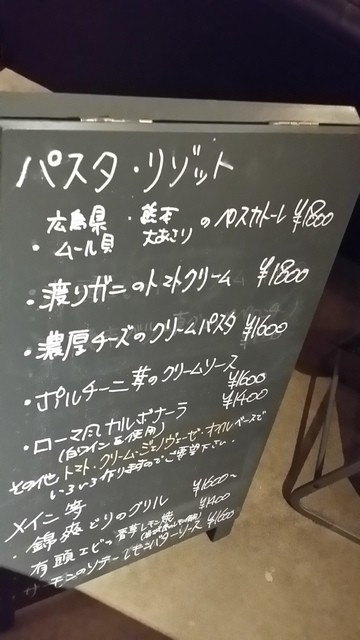 パスタ・リゾット
・広島県ムール貝・大あさりのペスカトーレ ¥1800
・渡りガニのトマトクリーム ¥1800
・濃厚チーズのクリームパスタ ¥1600
・ポルチーニ茸のクリームソース ¥1600
・ローマ風カルボナーラ ¥1400
(白ワインを使用)
その他 トマト・クリーム・ジェノヴェーゼ・オイルベースで
いろいろ作りますのでご要望下さい。
メイン等
・錦爽どりのグリル ¥1600~
・有頭エビの香草レモン焼 ¥1400
サーモンのソテーレモンバターソース ¥1600